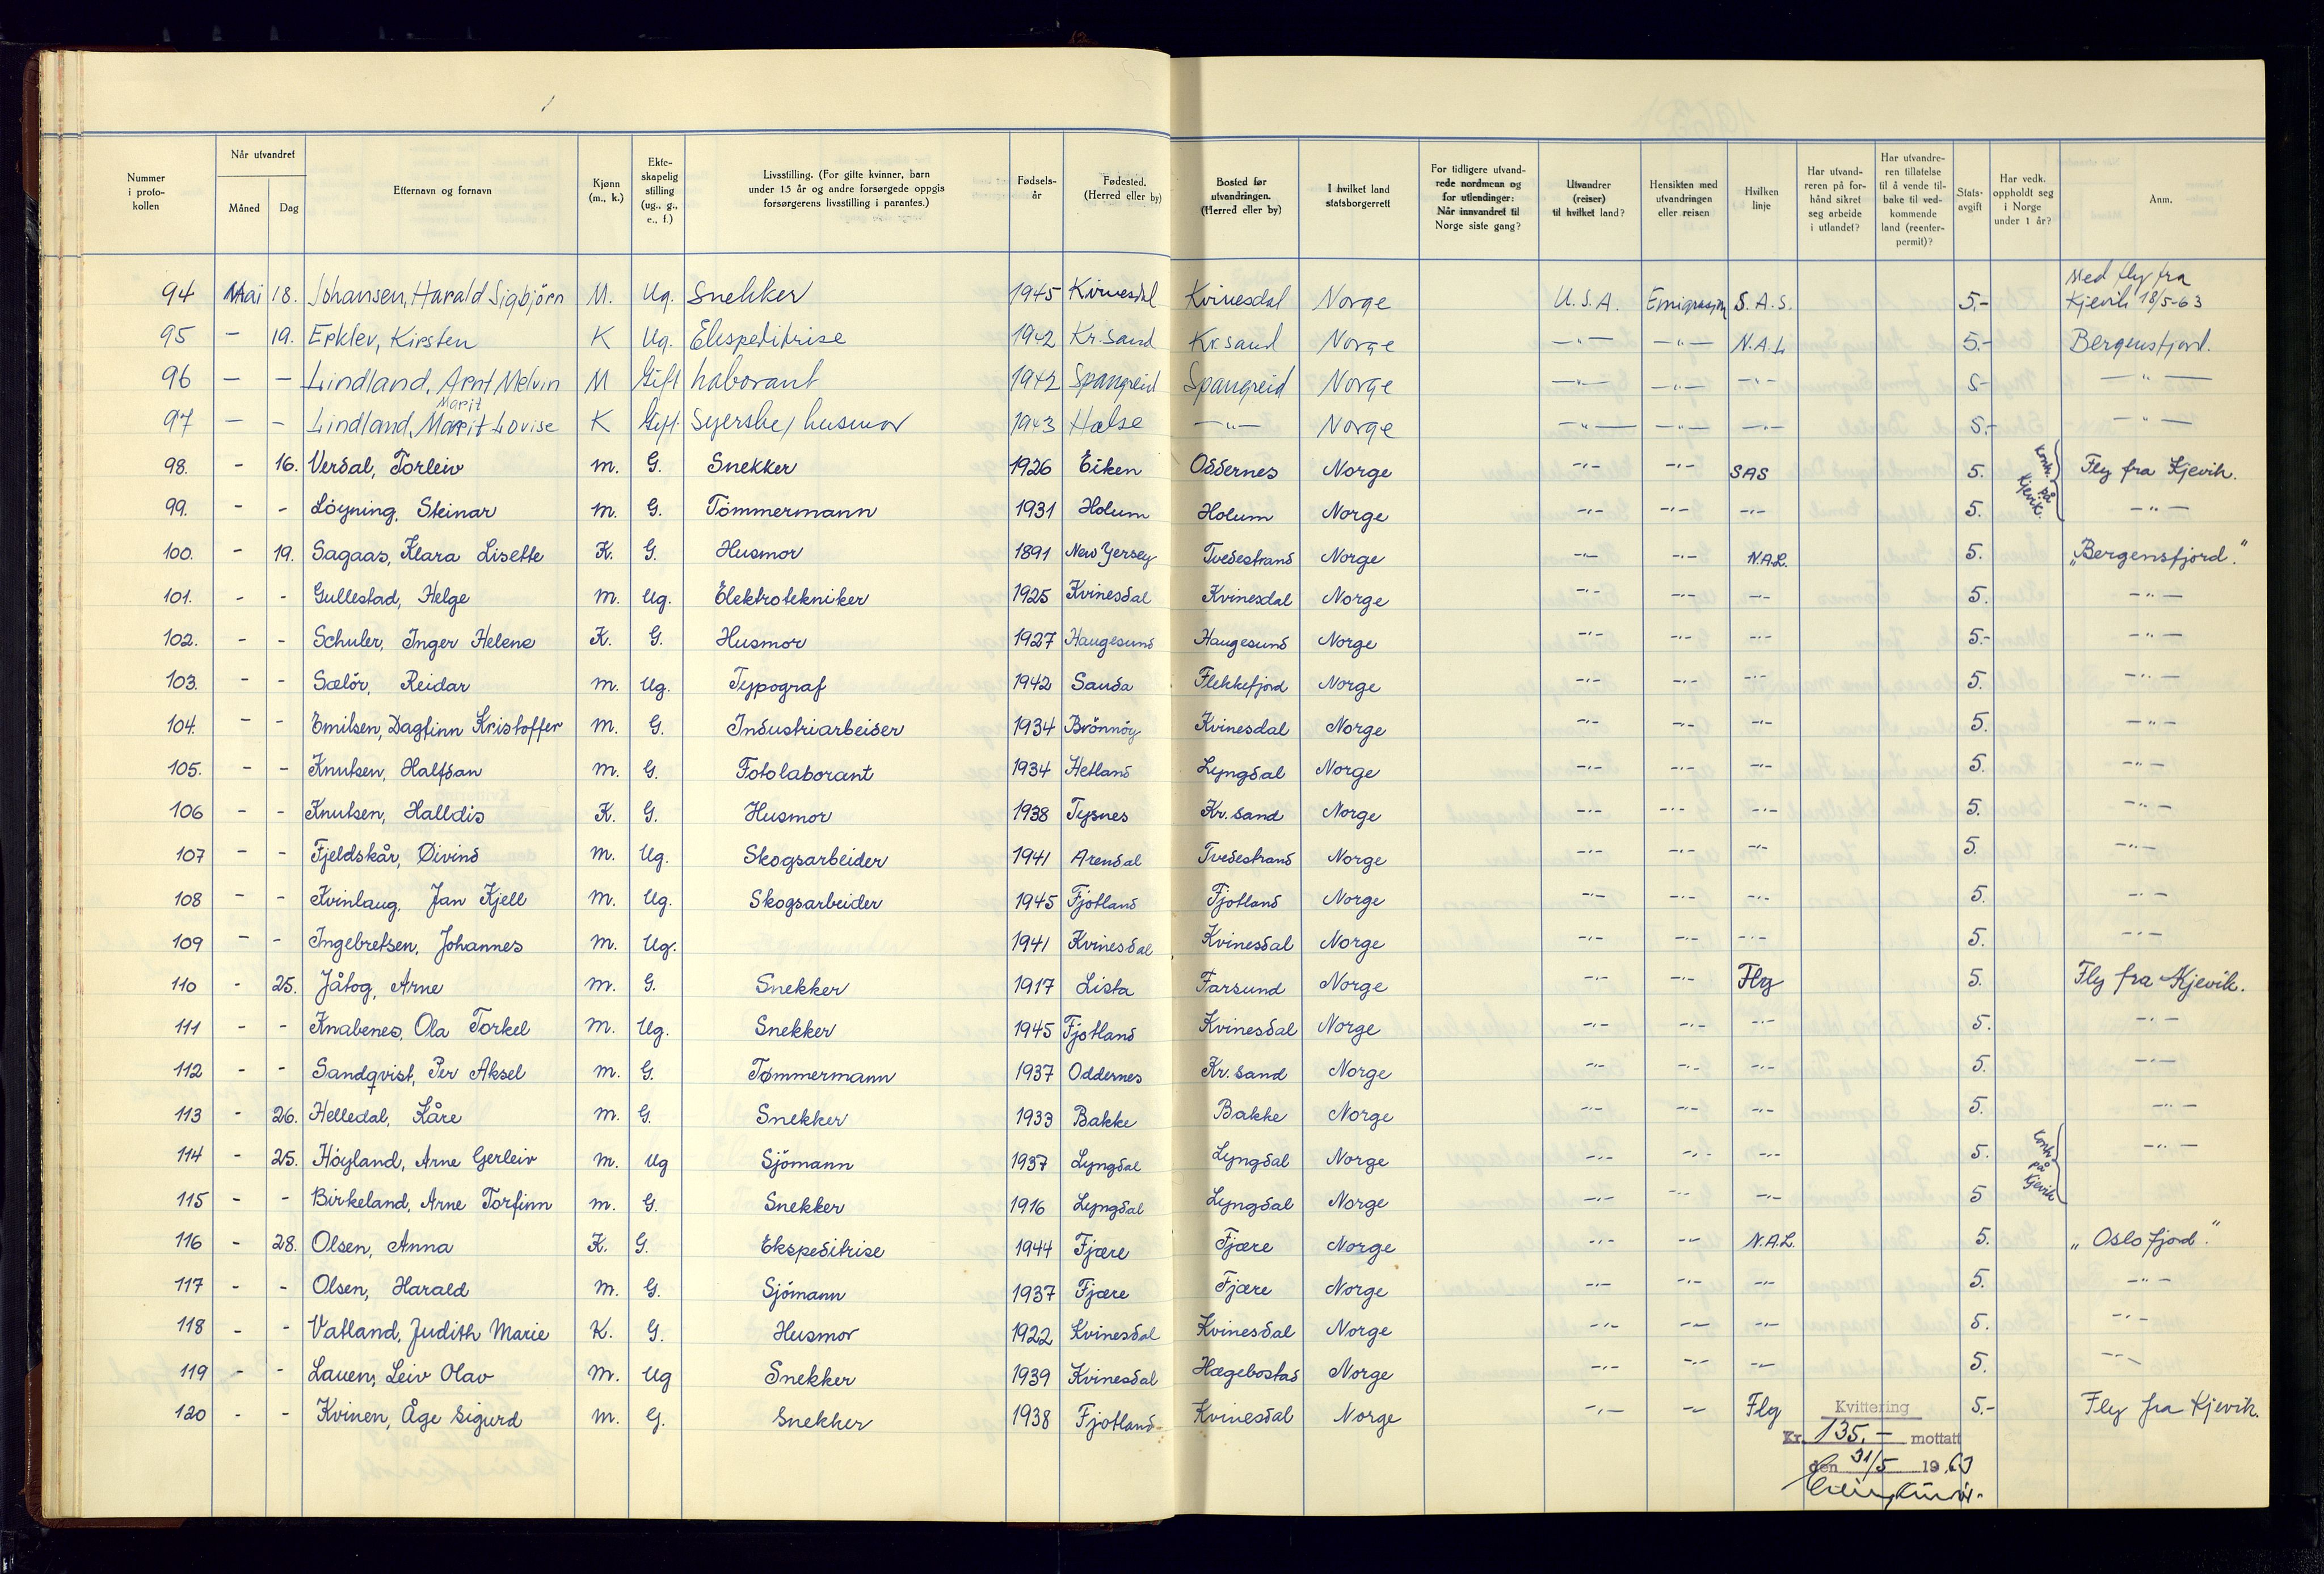 Nummer i proto- kollen | Når utvandret Måned Dag | Etternavn og fornavn | Kjønn (m., k.) | Ekte- skapelig stilling (ug., g., e., f.) | Livsstilling. (For gifte kvinner, barn under 15 år og andre forsørgede oppgis forsørgerens livsstilling i parantes.) | Fødsels- år | Fødested. (Herred eller by) | Bosted før utvandringen. (Herred eller by) | I hvilket land statsborgerrett | For tidligere utvand- rede nordmenn og for utlendinger: Når innvandret til Norge siste gang? | Utvandrer (reiser) til hvilket land? | Hensikten med utvandringen eller reisen | Hvilken linje | Har utvand- reren på for- hånd sikret seg arbeide i utlandet? | Har utvandre- ren tillatelse til å vende til- bake til ved- kommende land (reenter- permit)? | Stats- avgift | Har vedk. oppholdt seg i Norge under 1 år? | Anm.
94 Mai 18. Johansen, Harald Sigbjörn M. Ug. Snekker 1945 Kvinesdal Kvinesdal Norge U.S.A. Emigrasjon S.A.S. 5.- Med fly fra Kjevik 18/5-63
95 - 19. Erklev, Kirsten K Ug. Ekspeditrise 1942 Kr.sand Kr.sand Norge -"- -"- N.A.L 5.- Bergensfjord.
96 - - Lindland, Arnt Melvin M Gift Laborant 1942 Spangreid Spangreid Norge -"- -"- -"- 5- -"-
97 - - Lindland, Marit Lovise Marit K Gift Syerske / husmor 1943 Halse -"- Norge -"- -"- -"- 5.- -"-
98. - 16. Verdal, Torleiv m. G. Snekker 1926 Eiken Oddernes Norge -"- -"- SAS 5. Kontr. på Kjevik. Fly fra Kjevik.
99. - - Löyning, Steinar m. G. Tömmermann 1931 Holum Holum Norge -"- -"- -"- 5. -"-
100. - 19. Sagaas, Klara Lisette K. G. Husmor 1891 New Yersey Tvedestrand Norge -"- -"- N.A.L. 5. "Bergensfjord."
101. - - Gullestad, Helge m. Ug. Elektrotekniker 1925 Kvinesdal Kvinesdal Norge -"- -"- -"- 5. -"-
102. - - Schuler, Inger Helene K. G. Husmor 1927 Haugesund Haugesund Norge -"- -"- -"- 5.- -"-
103. - - Sælör, Reidar m. Ug. Typograf 1942 Sauda Flekkefjord Norge -"- -"- -"- 5. -"-
104. - - Emilsen, Dagfinn Kristoffer m. G. Industriarbeider 1934 Brönnöy Kvinesdal Norge -"- -"- -"- 5. -"-
105. - - Knutsen, Halfdan m. G. Fotolaborant 1934 Hetland Lyngdal Norge -"- -"- -"- 5. -"-
106 - - Knutsen, Halldis K. G. Husmor 1938 Tysnes Kr.sand Norge -"- -"- -"- 5. -"-
107 - - Fjeldskår, Øivind m. Ug. Skogsarbeider 1941 Arendal Tvedestrand Norge -"- -"- -"- 5. -"-
108 - - Kvinlaug, Jan Kjell m. Ug. Skogsarbeider 1945 Fjotland Fjotland Norge -"- -"- -"- 5. -"-
109 - - Ingebretsen, Johannes m. Ug. 1941 Kvinesdal Kvinesdal Norge -"- -"- -"- 5. -"-
110 - 25. Jåtog, Arne m. G. Snekker 1917 Lista Farsund Norge -"- -"- Fly 5. Fly fra Kjevik.
111 - - Knabenes, Ola Torkel m. Ug. Snekker 1945 Fjotland Kvinesdal Norge -"- -"- -"- 5. -"-
112 - - Sandqvist, Per Aksel m. G. Tømmermann 1937 Oddernes Kr.sand Norge -"- -"- -"- 5. -"-
113 - 26. Helledal, Kåre m. G. Snekker 1933 Bakke Bakke Norge -"- -"- -"- 5. -"-
114 - 25. Höyland, Arne Gerleiv m. Ug Sjömann 1937 Lyngdal Lyngdal Norge -"- -"- -"- 5. Kontr. på Kjevik -"-
115 - - Birkeland, Arne Torfinn m. G. Snekker 1916 Lyngdal Lyngdal Norge -"- -"- -"- 5
116 - 28. Olsen, Anna K. G. Ekspeditrise 1944 Fjære Fjære Norge -"- -"- N.A.L. 5. "Oslofjord".
117 - - Olsen, Harald m. G. Sjömann 1937 Fjære Fjære Norge -"- -"- -"- 5. -"-
118 - - Vatland, Judith Marie K. G. Husmor 1922 Kvinesdal Kvinesdal Norge -"- -"- -"- 5. -"-
119 - - Lauen, Leiv Olav m. Ug Snekker 1939 Kvinesdal Hægebostad Norge -"- -"- -"- 5. -"-
120 - - Kvinen, Åge Sigurd m. G. Snekker 1938 Fjotland Kvinesdal Norge -"- -"- Fly 5.- Fly fra Kjevik.
Kvittering
Kr. 135.- mottatt
den 31/5 1963